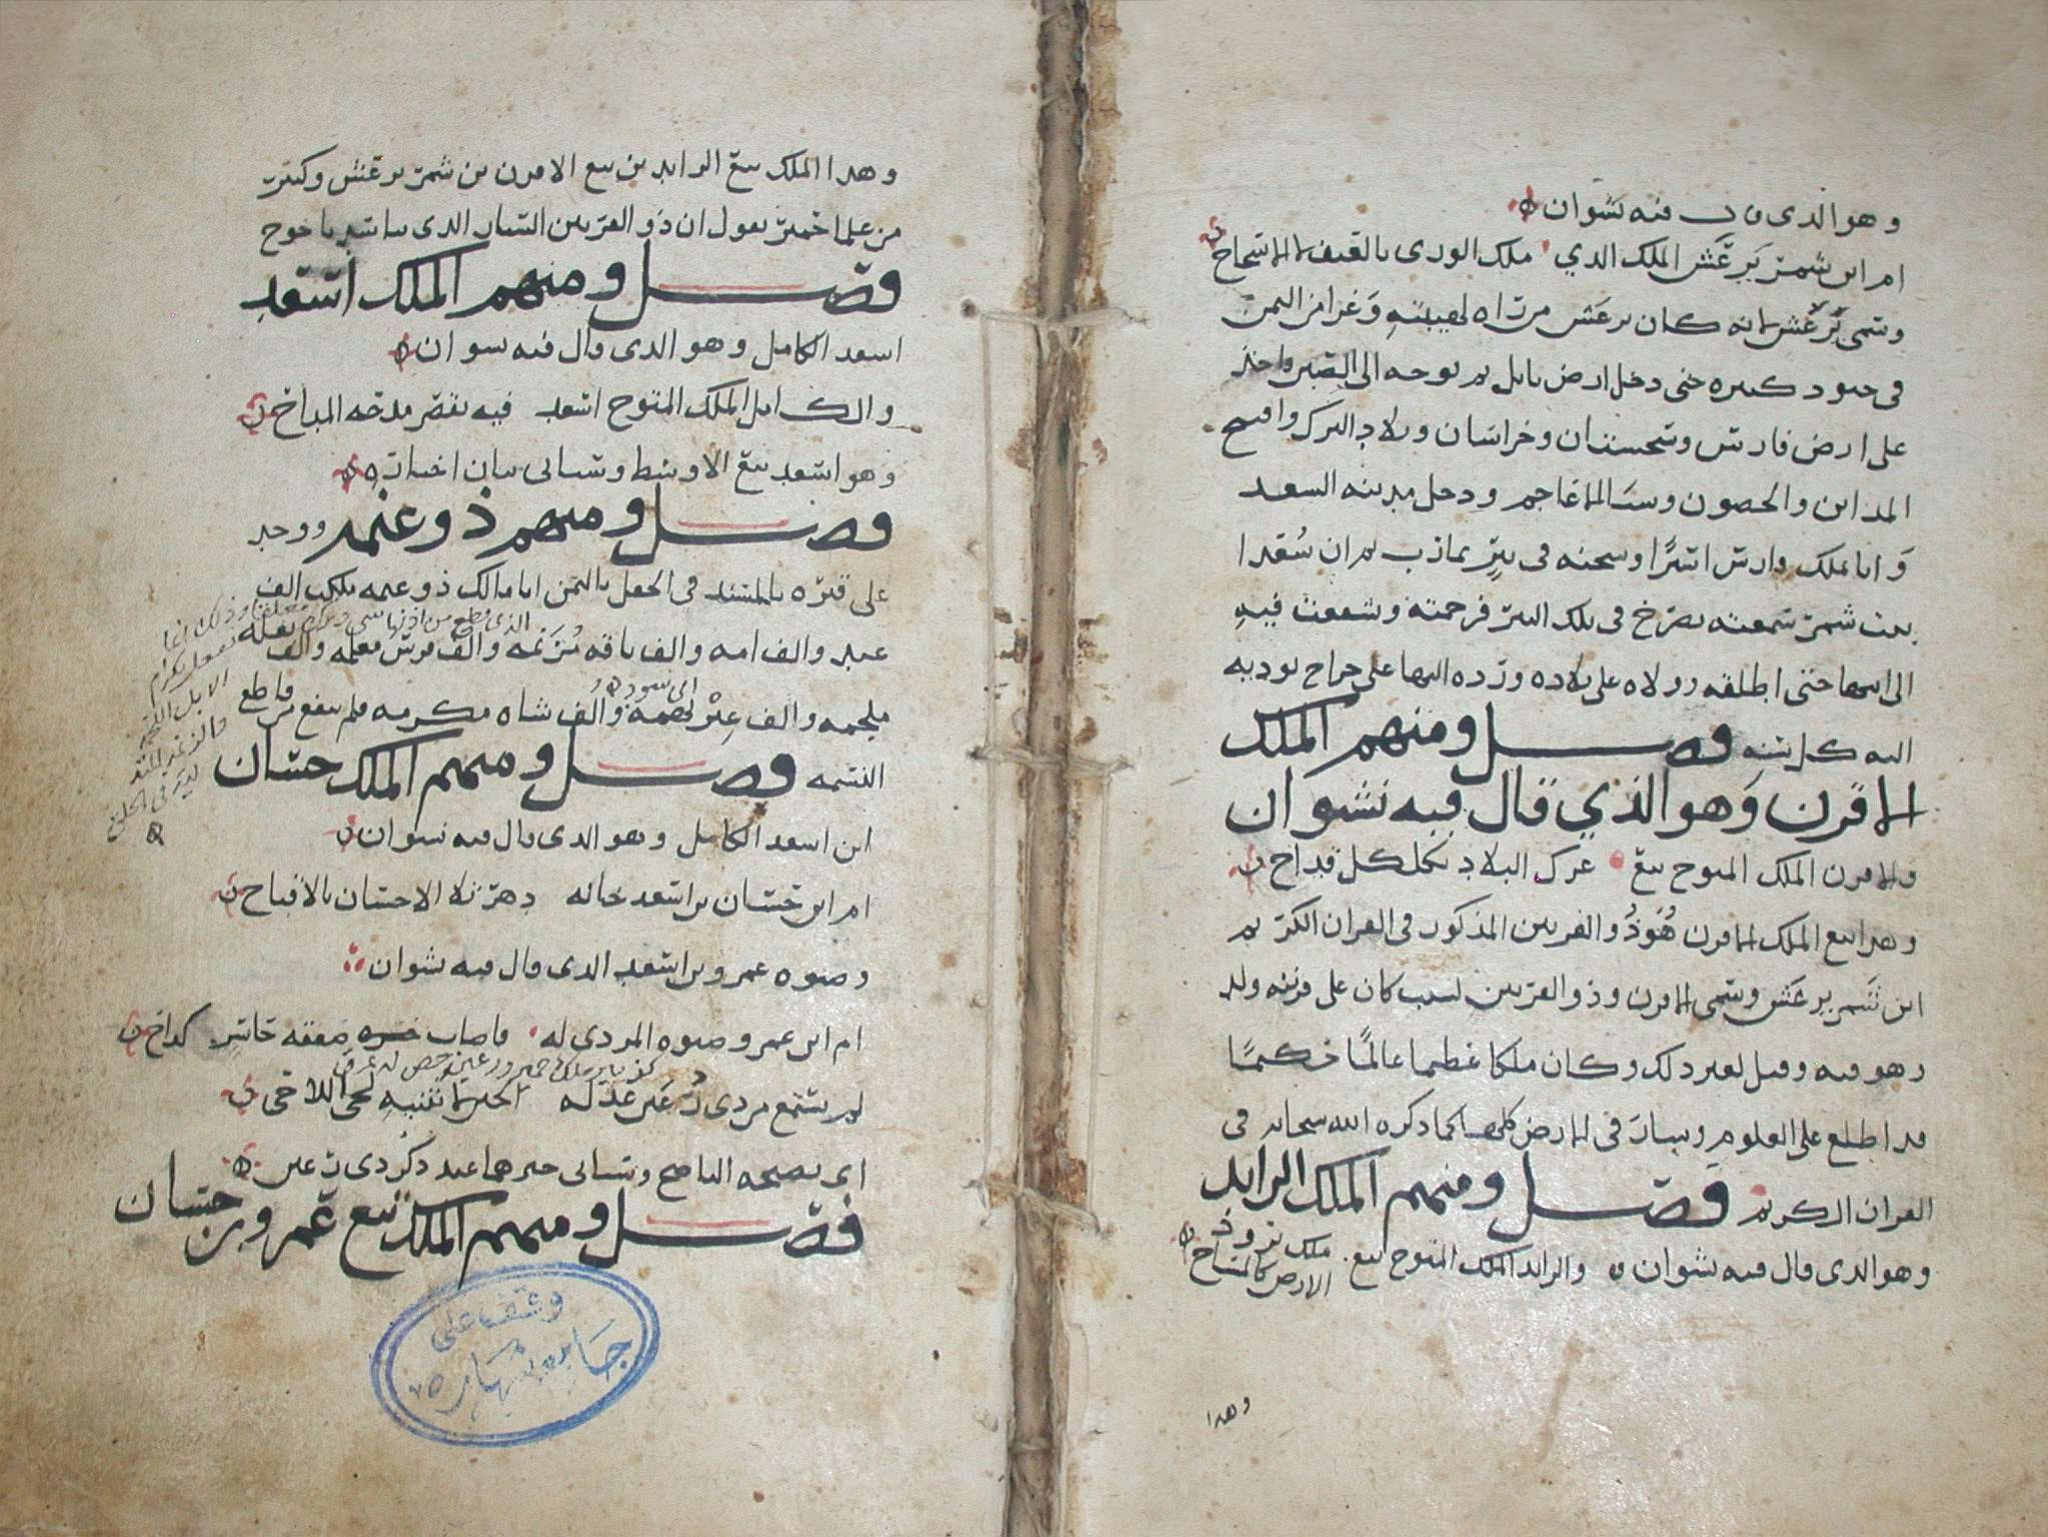 وهو الذي قال فيه نشوان
ام اين شمر يرعش الملك الذي ملك الورى بالعنف والاسجاح
وسمى يرعش لانه كان يرعش من رآه لهيبته وغزا من اليمن
في جنود كثيره حتى دخل ارض بابل ثم توجه الى الصين واخذ
على ارض فارس وسجستان وخراسان وبلاد الترك وافتتح
المداين والحصون وسبا الاعاجم ودخل مدينه السغد
واتا بملك فارس اسيرًا وسجنه في بير بمارب ثم ان سُعدا
بنت شمر سمعته يصرخ في تلك البير فرحمته وشفعت فيه
الى ابيها حتى اطلقه وولاه على بلاده ورده اليها على خراج يوديه
اليه كل سنه فصل ومنهم الملك
الاقرن وهو الذي قال فيه نشوان
والاقرن الملك المتوج تبع عرك البلاد بكلكل فداح
وهذا تبع الملك الاقرن هُوذُو القرنين المذكور في القران الكريم
ابن شمر يرعش وسمى الاقرن وذو القرنين لشيب كان على قرنيه ولد
وهو فيه وقيل لغير ذلك وكان ملكا عظيما عالمًا حكيمًا
قد اطلع على العلوم وسار في الارض كلها كما ذكره الله سبحانه في
القران الكريم فصل ومنهم الملك الرايد
وهو الذي قال فيه نشوان والرايد الملك المتوج تبع ملك يرود
الارض كالمساح
وهذا
وهذا الملك تبع الرايد بن تبع الاقرن بن شمر يرعش وكثير
من علما حمير يقول ان ذو القرنين السيار الذي بنا سد ياجوج
فصل ومنهم الملك اسعد
اسعد الكامل وهو الذي قال فيه نشوان
والكامل الملك المتوج اسعد فيه يقصر مدحه المداح
وهو اسعد تبع الاوسط وسياتي بيان اخباره
فصل ومنهم ذو غنمه ووجد
على قبره بالمسند في الحقل باليمن انا مالك ذو غنمه ملكت الف
عبد والف امه والف ناقه مُزنمه والف فرس معلمه والف بغله
ملجمه والف عنز لحمه والف شاه مكرمه فلم ينفع من قاطع
النسمه فصل ومنهم الملك حسان
ابن اسعد الكامل وهو الذي قال فيه نشوان
ام اين حسان بن اسعد خانه دهر تلا الاحسان بالاقباح
وصنوه عمرو بن اسعد الذي قال فيه نشوان
ام اين عمرو وصنوه المردي له فاصاب صفقه خاسر كداح
لم يستمع من ذي رُعين عذله الحبر لا يثنيه لحي اللاحي
اي نصيحه الناصح وسياتي خبرهما عند ذكر ذي رعين
فصل ومنهم الملك تبع عمرو بن حسان
وقف على
جامع شهاره